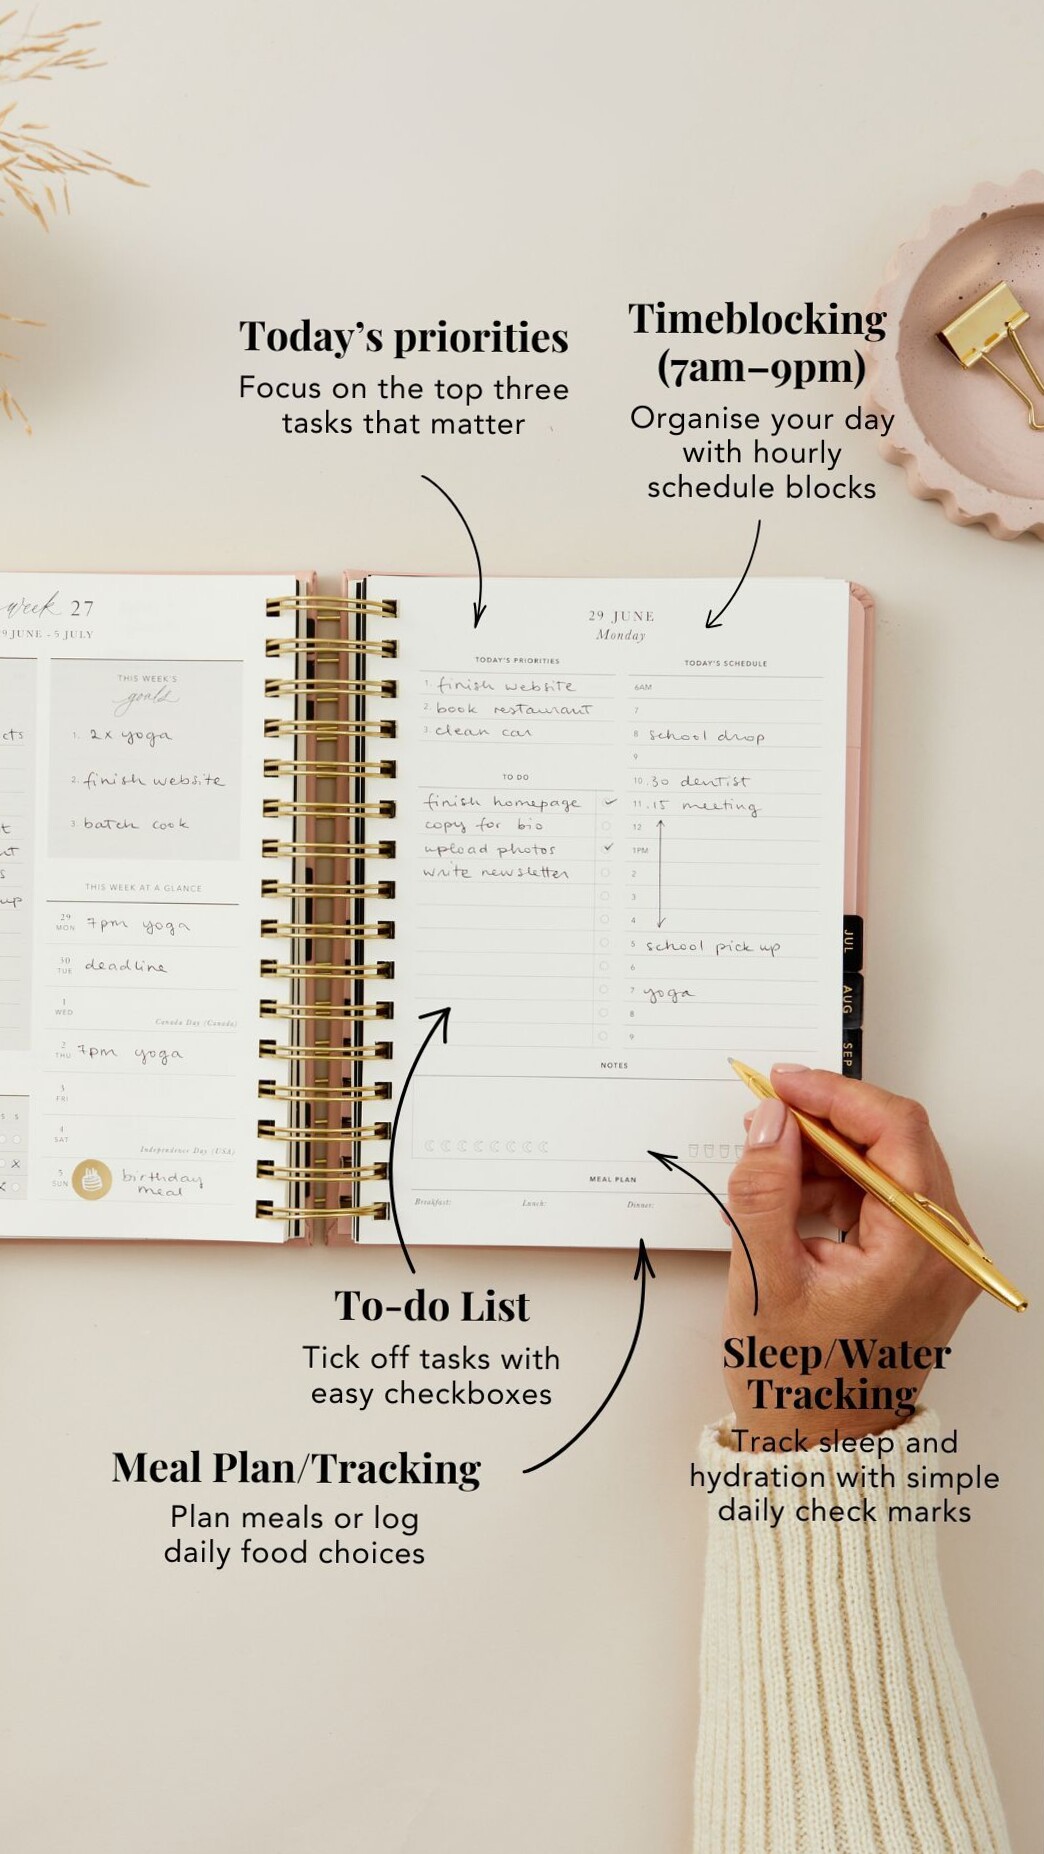 Today's priorities
Focus on the top three
tasks that matter
Timeblocking
(7am–9pm)
Organise your day
with hourly
schedule blocks
week 27
9 JUNE - 5 JULY
THIS WEEK'S
goals
1. 2x yoga
2. finish website
3. batch cook
THIS WEEK AT A GLANCE
29
MON 7pm yoga
30
TUE deadline
1
WED
Canada Day (Canada)
2
THU 7pm yoga
3
FRI
4
SAT
Independence Day (USA)
5
SUN birthday
meal
cts
t
nt
s
up
S S
29 JUNE
Monday
TODAY'S PRIORITIES
1. finish website
2. book restaurant
3. clean car
TO DO
finish homepage
copy for bio
upload photos
write newsletter
TODAY'S SCHEDULE
6AM
7
8 school drop
9
10 .30 dentist
11 .15 meeting
12
1PM
2
3
4
5 school pick up
6
7 yoga
8
9
NOTES
MEAL PLAN
Breakfast: Lunch: Dinner:
JUL
AUG
SEP
To-do List
Tick off tasks with
easy checkboxes
Meal Plan/Tracking
Plan meals or log
daily food choices
Sleep/Water
Tracking
Track sleep and
hydration with simple
daily check marks